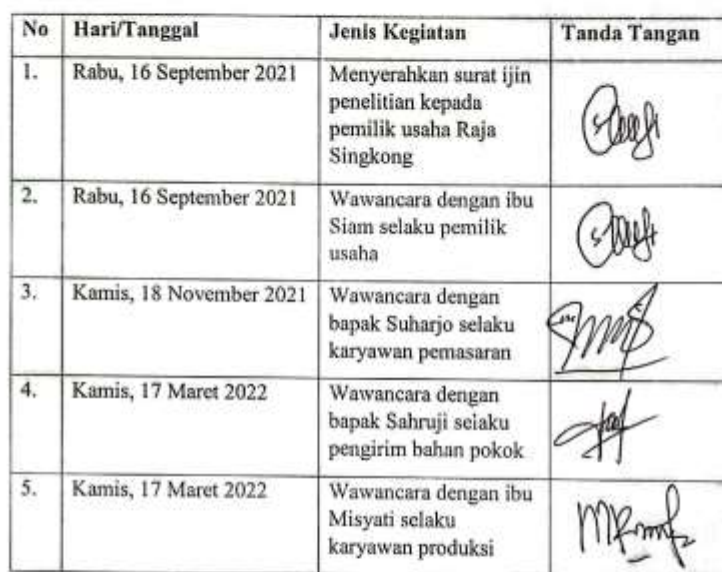 No Hari/Tanggal Jenis Kegiatan Tanda Tangan
1. Rabu, 16 September 2021 Menyerahkan surat ijin
penelitian kepada
pemilik usaha Raja
Singkong
2. Rabu, 16 September 2021 Wawancara dengan ibu
Siam selaku pemilik
usaha
3. Kamis, 18 November 2021 Wawancara dengan
bapak Suharjo selaku
karyawan pemasaran
4. Kamis, 17 Maret 2022 Wawancara dengan
bapak Sahruji selaku
pengirim bahan pokok
5. Kamis, 17 Maret 2022 Wawancara dengan ibu
Misyati selaku
karyawan produksi